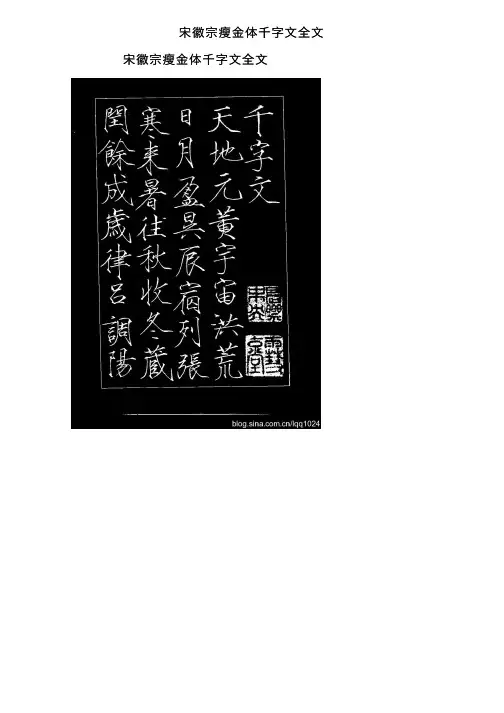 宋徽宗瘦金体千字文全文
宋徽宗瘦金体千字文全文
千字文
天地元黃宇宙洪荒
日月盈昃辰宿列張
寒来暑往秋收冬藏
閏餘成歲律呂調陽
blog.sina.com.cn/lqq1024